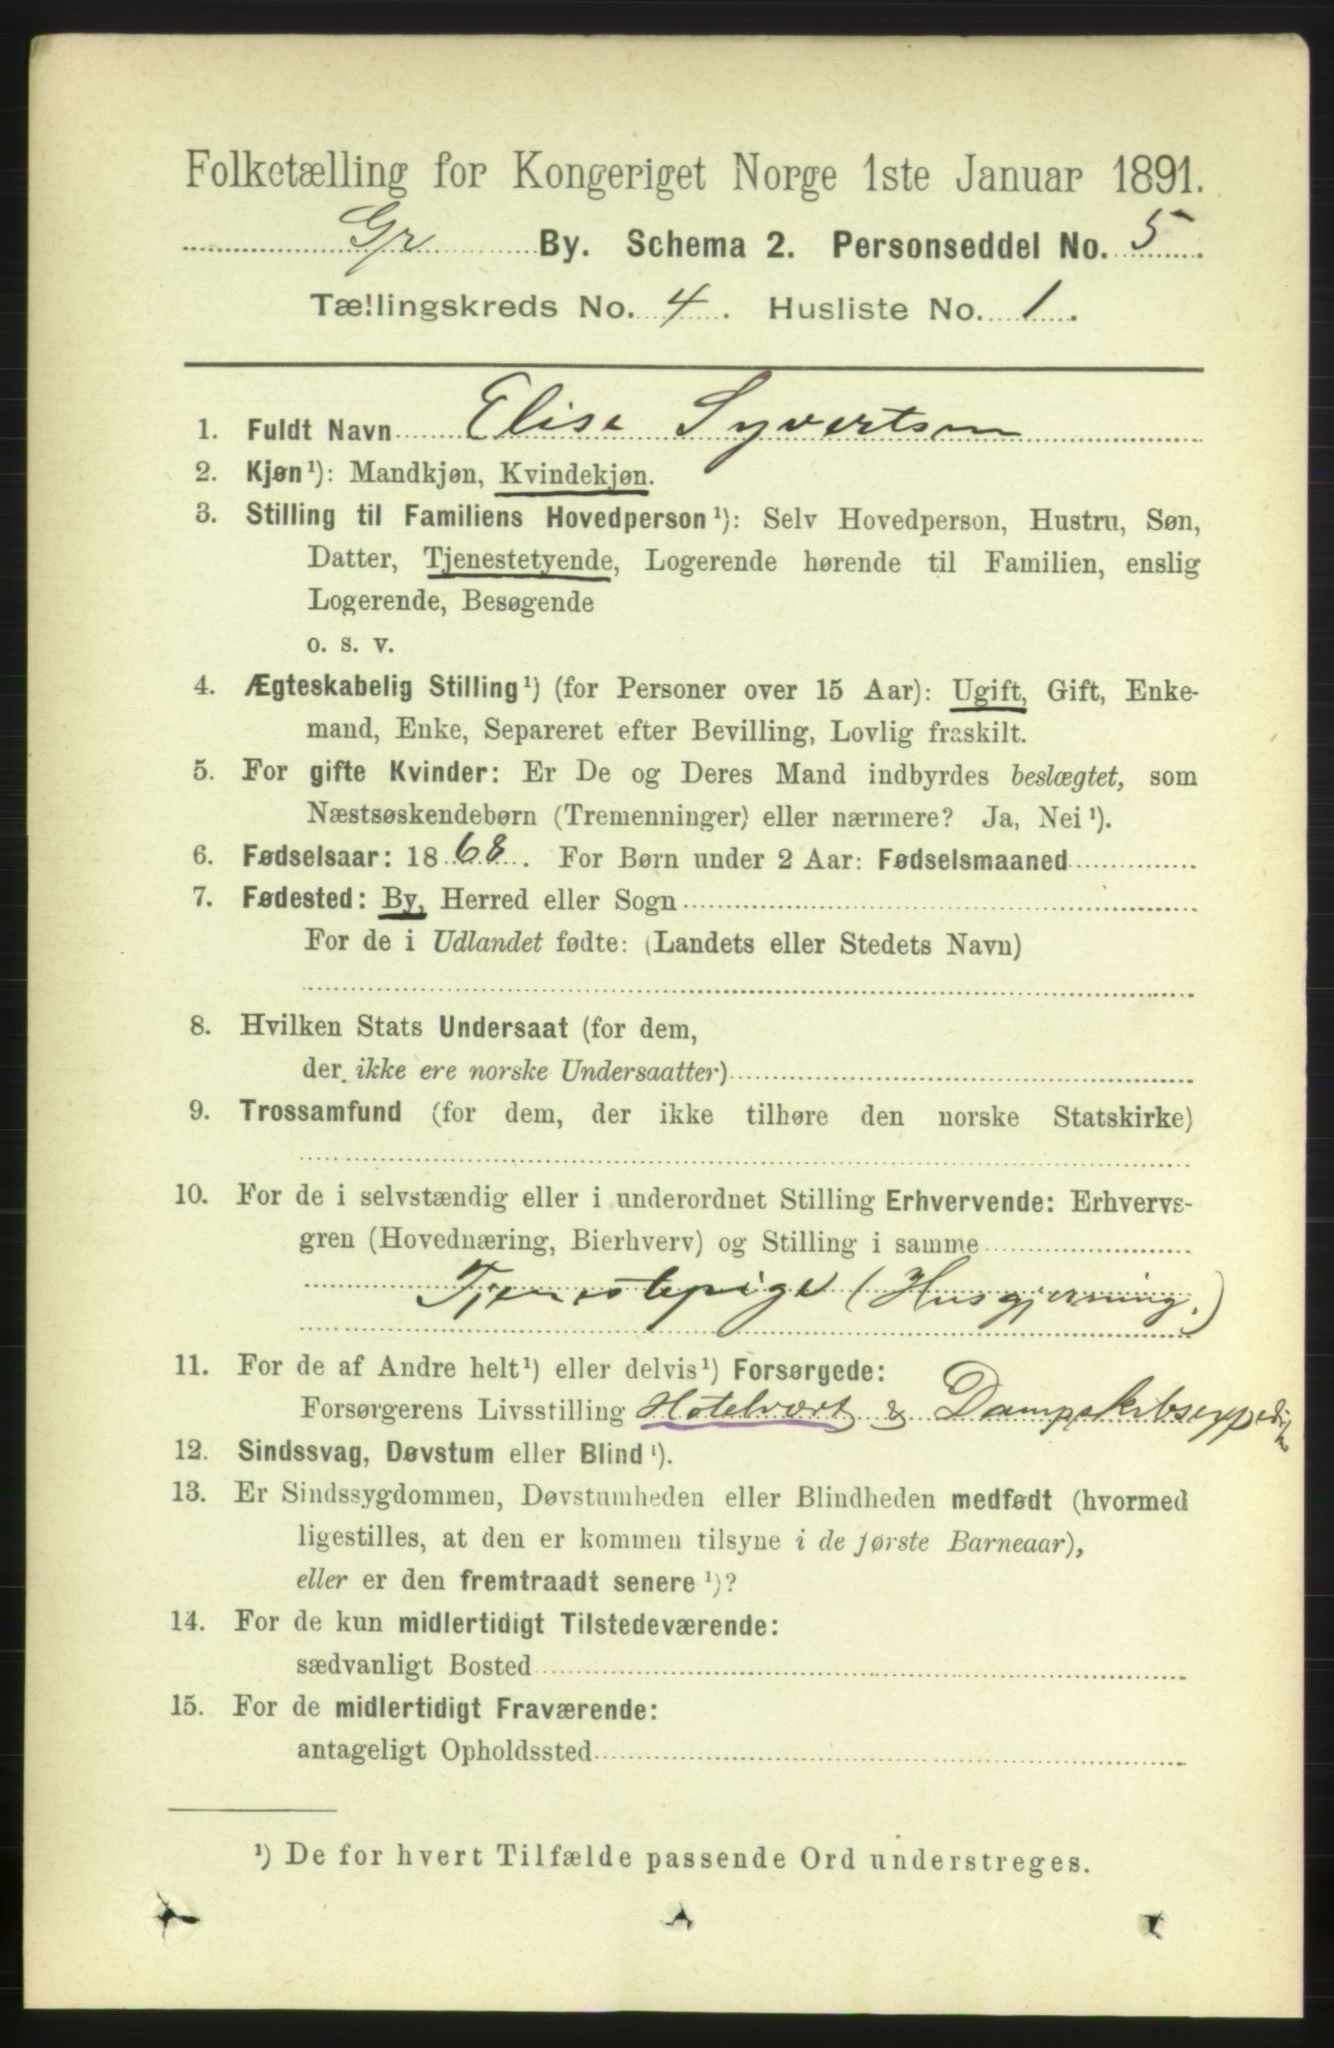 Folketælling for Kongeriget Norge 1ste Januar 1891.
Gr By. Schema 2. Personseddel No. 5.
Tællingskreds No. 4. Husliste No. 1.
1. Fuldt Navn Elise Syvertsen
2. Kjøn¹): Mandkjøn, Kvindekjøn.
3. Stilling til Familiens Hovedperson¹): Selv Hovedperson, Hustru, Søn,
Datter, Tjenestetyende, Logerende hørende til Familien, enslig
Logerende, Besøgende
o. s. v.
4. Ægteskabelig Stilling¹) (for Personer over 15 Aar): Ugift, Gift, Enke-
mand, Enke, Separeret efter Bevilling, Lovlig fraskilt.
5. For gifte Kvinder: Er De og Deres Mand indbyrdes beslægtet, som
Næstsøskendebørn (Tremenninger) eller nærmere? Ja, Nei¹).
6. Fødselsaar: 1868. For Børn under 2 Aar: Fødselsmaaned
7. Fødested: By, Herred eller Sogn
For de i Udlandet fødte: (Landets eller Stedets Navn)
8. Hvilken Stats Undersaat (for dem,
der ikke ere norske Undersaatter)
9. Trossamfund (for dem, der ikke tilhøre den norske Statskirke)
10. For de i selvstændig eller i underordnet Stilling Erhvervende: Erhvervs-
gren (Hovednæring, Bierhverv) og Stilling i samme
Tjenestepige (Husgjerning.)
11. For de af Andre helt¹) eller delvis¹) Forsørgede:
Forsørgerens Livsstilling Hotelvært & 
12. Sindssvag, Døvstum eller Blind¹).
13. Er Sindssygdommen, Døvstumheden eller Blindheden medfødt (hvormed
ligestilles, at den er kommen tilsyne i de første Barneaar),
eller er den fremtraadt senere¹)?
14. For de kun midlertidigt Tilstedeværende:
sædvanligt Bosted
15. For de midlertidigt Fraværende:
antageligt Opholdssted
¹) De for hvert Tilfælde passende Ord understreges.